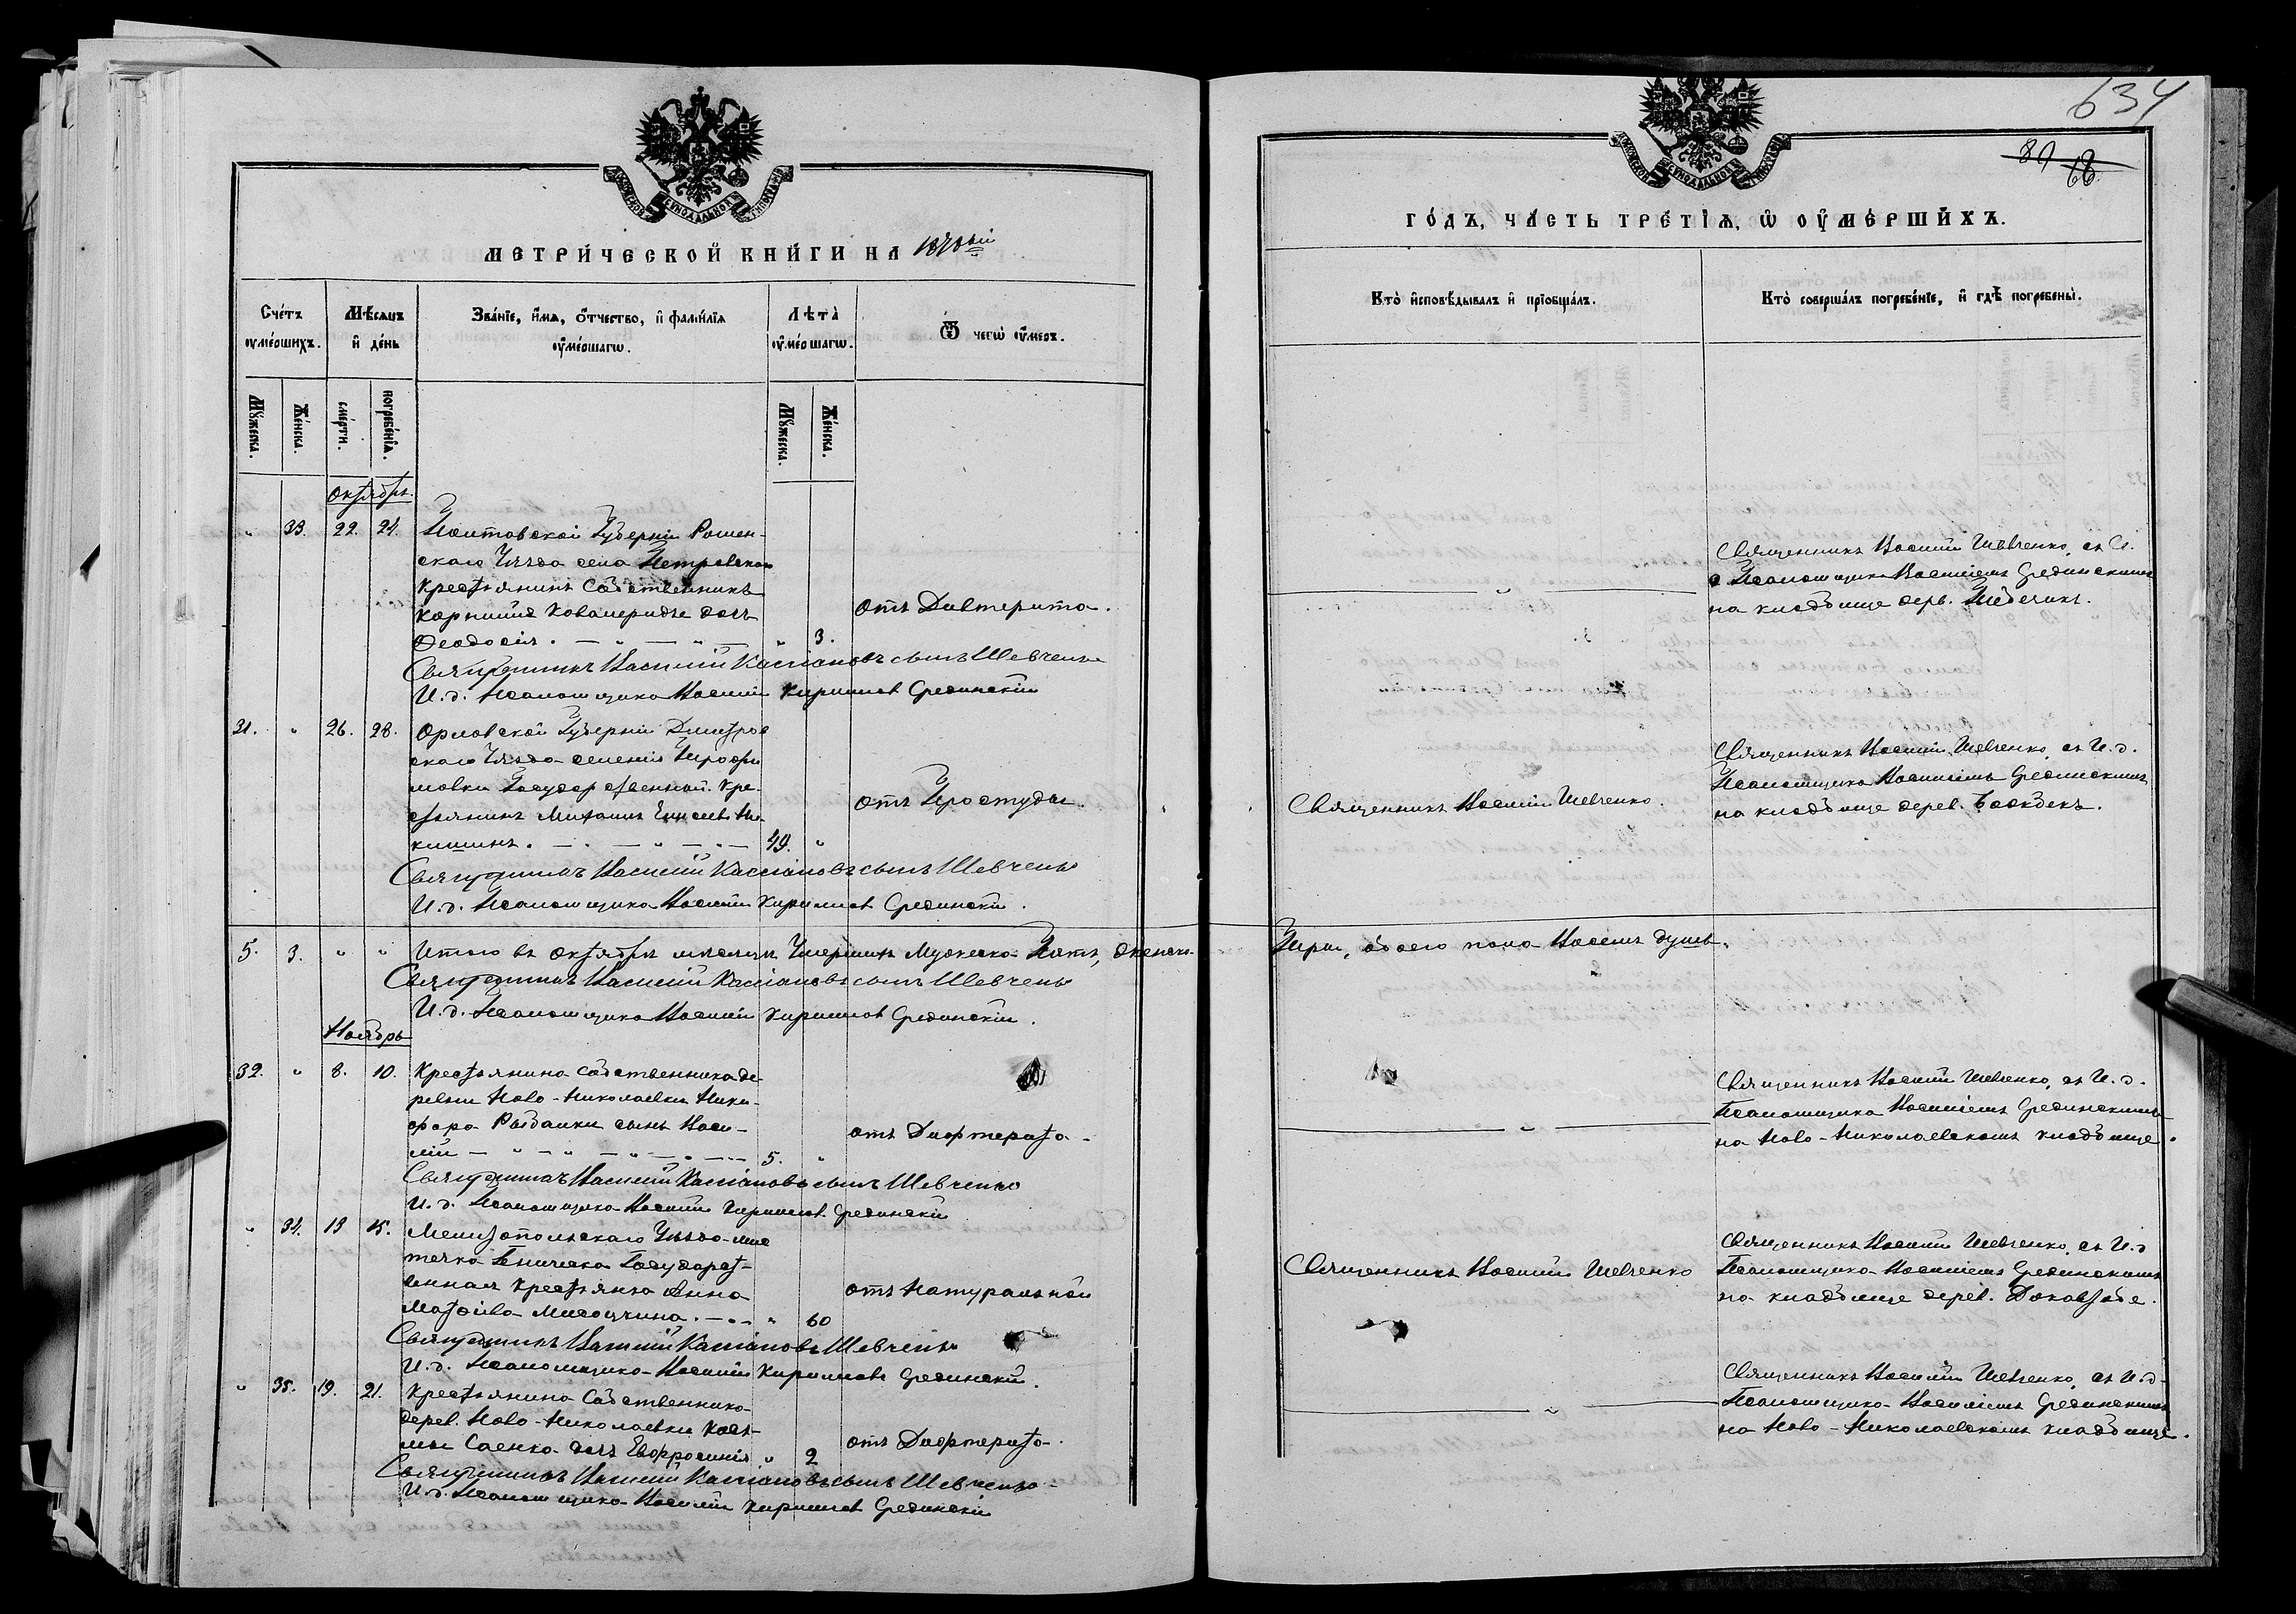 МЕТРИЧЕСКОЙ КНИГИ НА 1878ый
Счетъ умершихъ.
Мѣсяцъ и день
Званіе, имя, отчество, и фамилія умершагѡ.
Лѣта умершагѡ.
Ѿ чегѡ умеръ.
Мужеска.
Женска.
смерти.
погребенія.
Мужеска.
Женска.
Октябрь.
" 33. 22. 24. Полтавской Губерніи Ромен-
скаго Уѣзда села Петровскаго
Крестьянина Собственника
Корнилія дочь
Ѳеодосія. — " — " — " 3.
отъ Дивтерита.
Священникъ Василій Кассіановъ сынъ Шевченко
И. д. Псаломщика Василій Кириловъ Срединскій
31. " 26. 28. Орловской Губерніи Дмитров
скаго Уѣзда селенія
Государственной Кре-
стьянинъ Михаилъ
49. "
отъ Простуды.
Священникъ Василій Кассіановъ сынъ Шевченко
И. д. Псаломщика Василій Кириловъ Срединскій.
5. 3. " " Итого въ Октябрѣ мѣсяцѣ Умершихъ Мужеска Пять, Женска
Священникъ Василій Кассіановъ сынъ Шевченко
И. д. Псаломщика Василій Кириловъ Срединскій.
Ноябрь
32. " 8. 10. Крестьянина Собственника де-
ревни Ново-Николаевки Ники-
фора Рыбалки сынъ Васи-
лій — " — " — " — 5. "
отъ Дифтерита-
Священникъ Василій Кассіановъ сынъ Шевченко
И. д. Псаломщика Василій Кириловъ Срединскій
" 34. 13 15. Мелитопольскаго Уѣзда мѣс
течка Геническа Государст-
венная Крестьянка Анна
Матѳіева " 60
отъ Натуральной
Священникъ Василій Кассіановъ Шевченко
И. д. Псаломщика Василій Кириловъ Срединскій.
" 35. 19. 21. Крестьянина Собственника
дерев. Ново-Николаевки Козь-
мы Саенка дочь Евфросинія " 2
отъ Дифтерита-
Священникъ Василій Кассіановъ сынъ Шевченко
И. д. Псаломщика Василій Кириловъ Срединскій
634
89
68
ГОДЪ, ЧАСТЬ ТРЕТІЯ, Ѡ ОУМЕРШИХЪ.
Кто исповѣдывалъ и пріобщалъ.
Кто совершалъ погребеніе, и гдѣ погребены.
Священникъ Василій Шевченко, съ И.
д Псаломщика Василіемъ Срединскимъ
на кладбище дерв.
Священникъ Василій Шевченко.
Священникъ Василій Шевченко, съ И. д.
Псаломщика Василіемъ Срединскимъ
на кладбище дерев.
Три, обоего пола Восемь душъ.
Священникъ Василій Шевченко, съ И. д.
Псаломщика Василіемъ Срединскимъ
на Ново-Николаевскомъ кладбище.
Священникъ Василій Шевченко
Священникъ Василій Шевченко, съ И. д
Псаломщика Василіемъ Срединскимъ
на кладбище дерев.
Священникъ Василій Шевченко, съ И. д-
Псаломщика Василіемъ Срединскимъ
на Ново-Николаевскомъ кладбище.